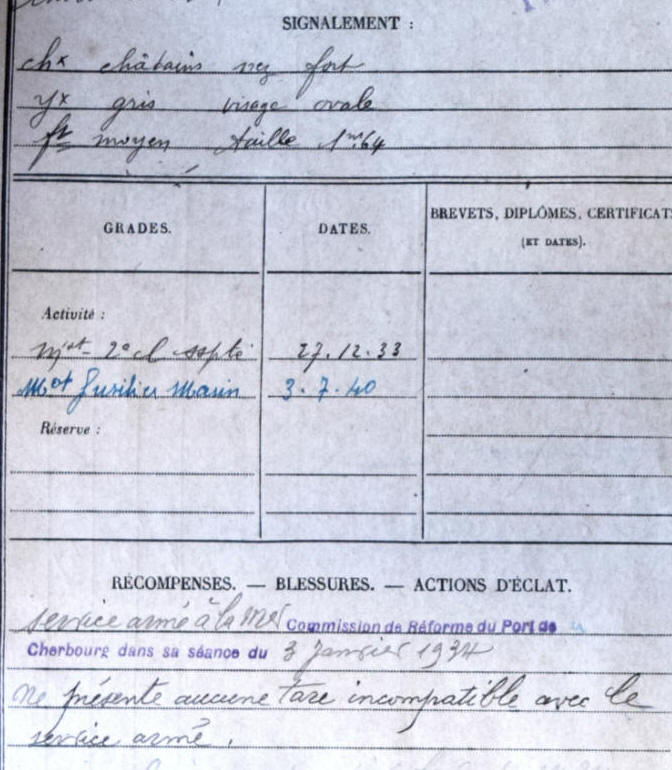 SIGNALEMENT :
chx châtains nez fort
yx gris visage ovale
ft moyen taille 1m64
GRADES. DATES. BREVETS, DIPLÔMES, CERTIFICAT
(ET DATES).
Activité :
Mot 2e cl 27.12.33
Mot fusilier Marin 3.7.40
Réserve :
RÉCOMPENSES. — BLESSURES. — ACTIONS D'ÉCLAT.
service armé à la mer Commission de Réforme du Port de
Cherbourg dans sa séance du 3 Janvier 1934
Ne présente aucune tare incompatible avec le
service armé.